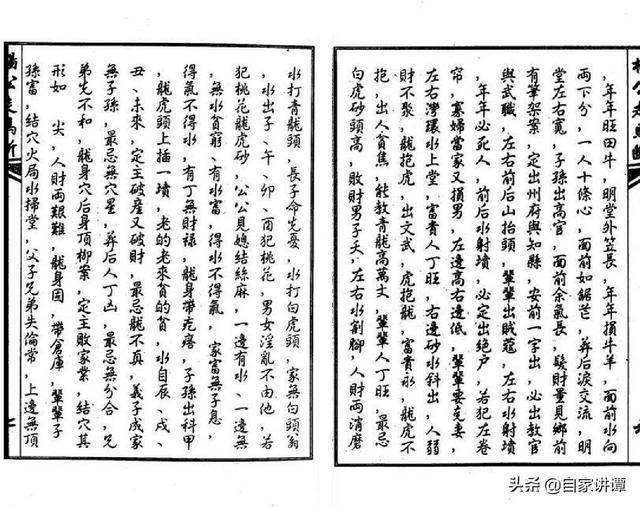 ，年年旺田牛，明堂外笠長，年年損牛羊，面前水向
兩下分，一人十條心，面前如鋸芒，葬后淚交流，明
堂左右寬，子孫出高官，面前余氣長，發財量見鄉前
有筆架案，定出州府與知縣，安前一字出，必出教官
與武職，左右前后山抬頭，輩輩出賊寇，左右水射墳
，年年必死人，前后水射墳，必定出绝户，若犯左卷
帘，寡婦當家又損男，左邊高右邊低，輩輩要克妻，
左右灣環水上堂，富貴人丁旺，右邊砂水斜出，人弱
財不聚，龍抱虎，出文武，虎抱龍，富貴永，龍虎不
抱，出人貧焦，能教青龍高萬丈，輩輩人丁旺，最忌
白虎砂頭高，敗財男子夭，左右水割腳，人財兩消磨
水打青龍頭，長子命先憂，水打白虎頭，家無白頭翁
，水出子、午、卯、酉犯桃花，男女淫亂不由他，若
犯桃花龍虎砂，公公見媳結絲麻，一邊有水、一邊無
、無水貧窮、有水富，得水不得氣，家富無子息，
得氣不得水，有丁無財祿，龍身帶疙瘩，子孫出科甲
，龍虎頭上插一墳，老的老來貧的貧，水自辰、戌、
丑、未來，定主破產又破財，最忌龍不真，義子成家
無子孫，最忌無穴星，葬后人丁凶，最忌無分合，兄
弟先不和，龍身穴后身頂柳案，定主敗家業，結穴其
形如 尖，人財兩艱難，龍身園，帶倉庫，輩輩子
孫富，結穴火局水掃堂，父子兄弟失倫常，上邊無頂
七
头条 @自家讲谭